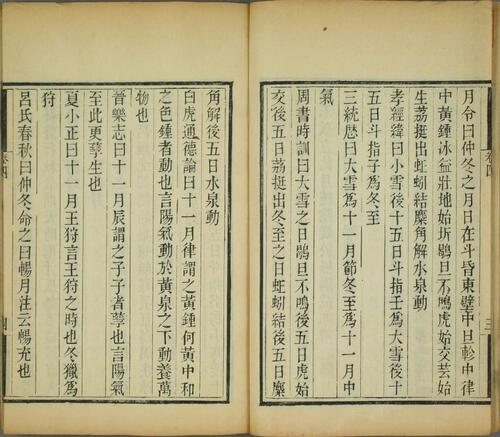 月令曰仲冬之月日在斗昏東壁中旦軫中律
中黃鍾冰益壯地始坼鶡旦不鳴虎始交芸始
生荔挺出蚯蚓結麋角解水泉動
孝經緯曰小雪後十五日斗指壬爲大雪後十
五日斗指子爲冬至
三統歴曰大雪爲十一月節冬至爲十一月中
氣
周書時訓曰大雪之日鶡旦不鳴後五日虎始
交後五日荔挺出冬至之日蚯蚓結後五日麋
角解後五日水泉動
白虎通德論曰十一月律謂之黃鍾何黃中和
之色鍾者動也言陽氣動於黃泉之下動養萬
物也
晉樂志曰十一月辰謂之子子者孳也言陽氣
至此更孳生也
夏小正曰十一月王狩言王狩之時也冬獵爲
狩
呂氏春秋曰仲冬命之曰暢月注云暢充也
卷四